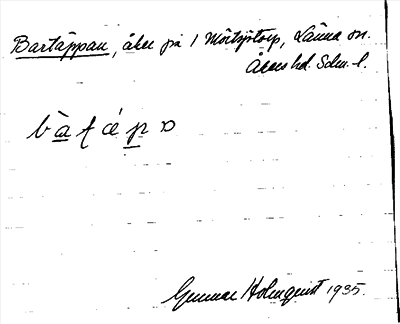 Bartäppan, åker på 1 Mörtstorp, Länna sn.
Åkers hd. Södm. l.
bạ̀ t ä́ p ɷ
Gunnar Holmquist 1935.